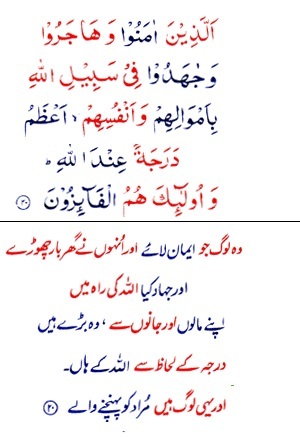 اَلَّذِيْنَ اٰمَنُوْا وَ هَاجَرُوْا
وَ جٰهَدُوْا فِيْ سَبِيْلِ اللّٰهِ
بِاَمْوَالِهِمْ وَ اَنْفُسِهِمْ ۙ اَعْظَمُ
دَرَجَةً عِنْدَ اللّٰهِ ؕ
وَ اُولٰٓئِكَ هُمُ الْفَآئِزُوْنَ ۲۰
وہ لوگ جو ایمان لائے اور اُنہوں نے گھر بار چھوڑے
اور جہاد کیا اللہ کی راہ میں
اپنے مالوں اور جانوں سے ، وہ بڑے ہیں
درجہ کے لحاظ سے اللہ کے ہاں۔
اور یہی لوگ ہیں مُراد کو پہنچنے والے ۲۰